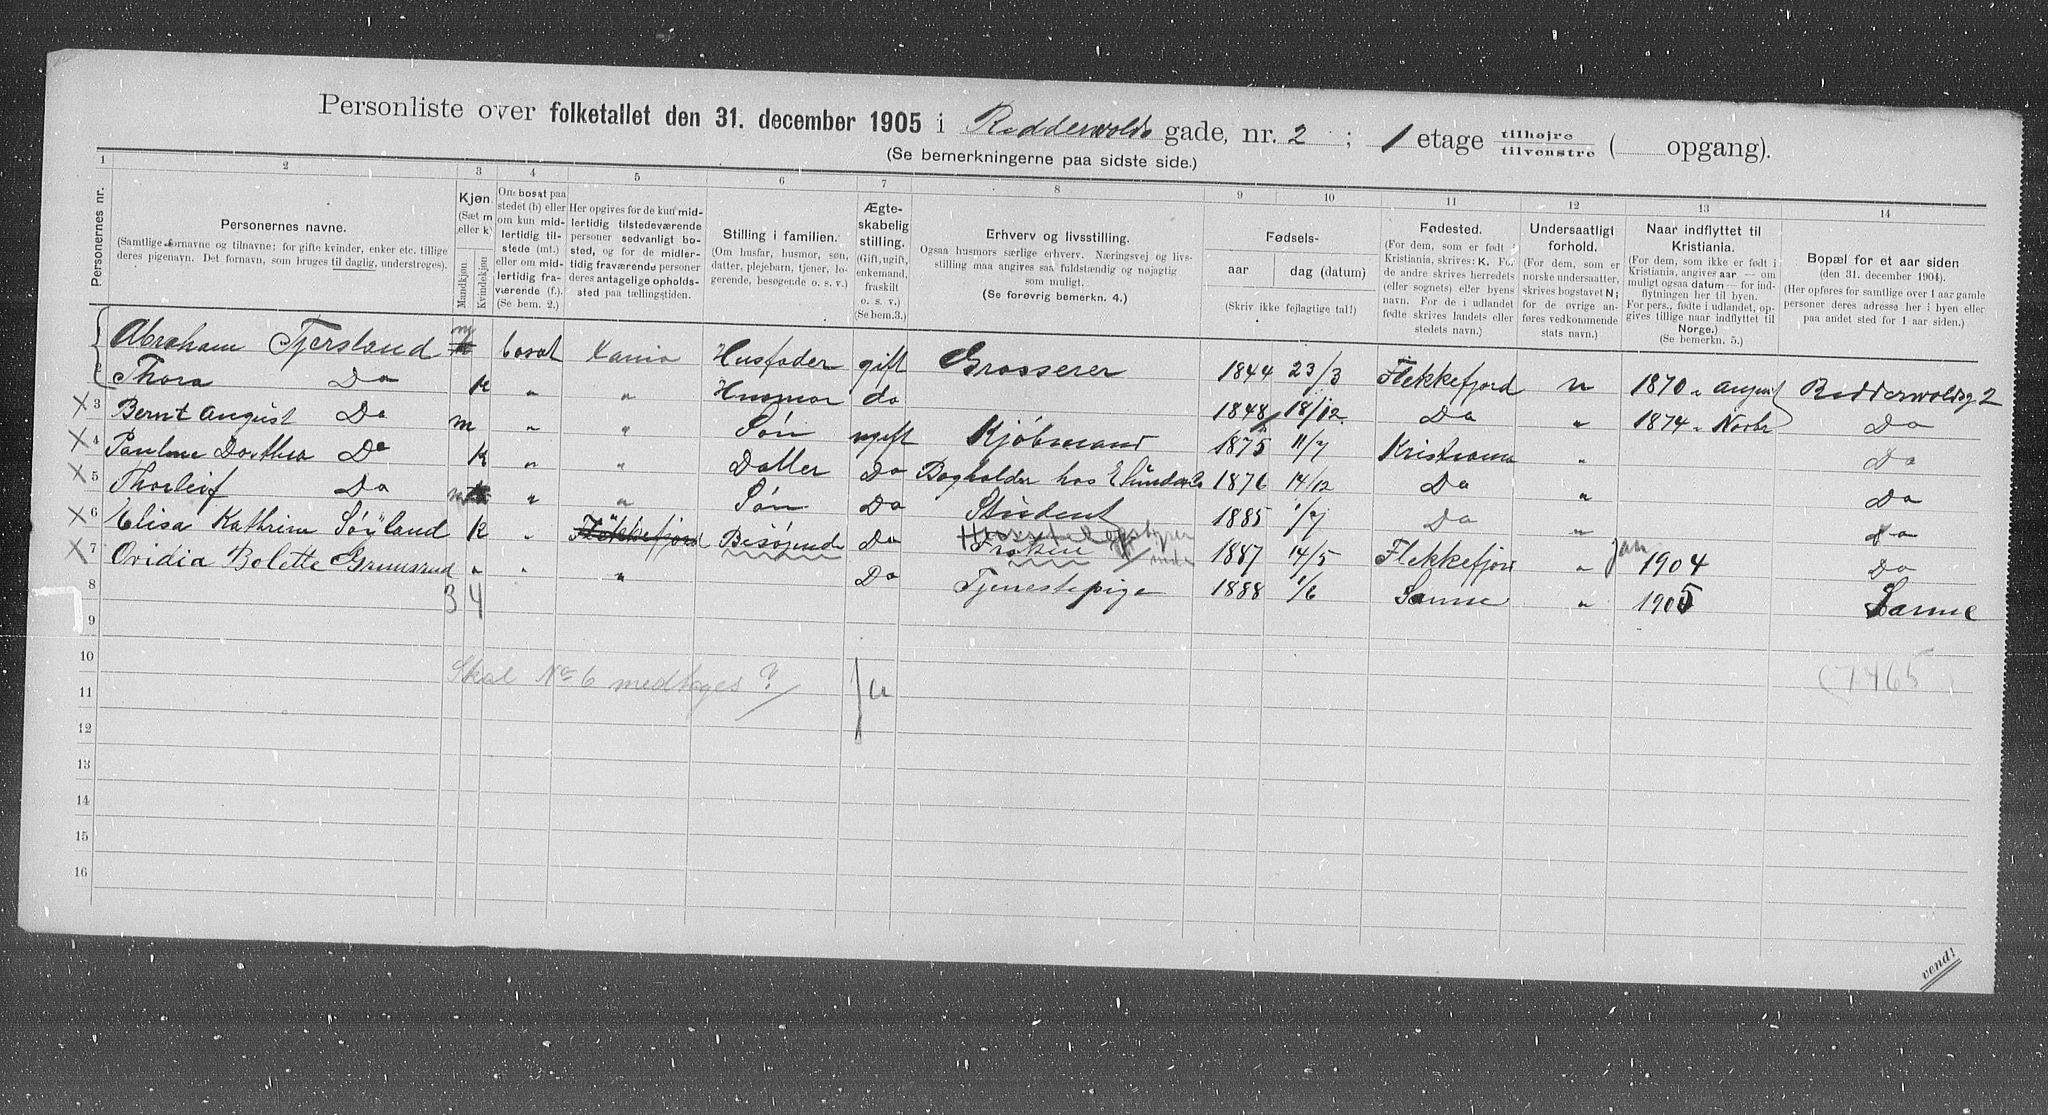 Personliste over folketallet den 31. december 1905 i Ridderwolds gade, nr. 2 ; 1 etage tilhøjre tilvenstre ( opgang).
(Se bemerkningerne paa sidste side.)
1 2 3 4 5 6 7 8 9 10 11 12 13 14
Personernes nr.
Personernes navne. (Samtlige fornavne og tilnavne; for gifte kvinder, enker etc. tillige deres pigenavn. Det fornavn, som bruges til daglig, understreges).
Kjøn (Sæt m eller k) Mandkjøn Kvindekjøn
Om bosat paa stedet (b) eller om kun midlertidig tilstede (mt.) eller om midlertidig fraværende (f.). (Se bem. 2.)
Her opgives for de kun midlertidig tilstedeværende personer sedvanligt bosted, og for de midlertidig fraværende personer deres antagelige opholdssted paa tællingstiden.
Stilling i familien. (Om husfar, husmor, søn, datter, plejebarn, tjener, logerende, besøgende o. s. v.)
Ægteskabelig stilling. (Gift, ugift, enkemand, fraskilt o. s. v.) (Se bem. 3.)
Erhverv og livsstilling. Ogsaa husmors særlige erhverv. Næringsvej og livsstilling maa angives saa fuldstændig og nøjagtig som muligt. (Se forøvrig bemerkn. 4.)
Fødsels- aar dag (datum) (Skriv ikke fejlagtige tal!)
Fødested. (For dem, som er født i Kristiania, skrives: K. For de andre skrives herredets (eller sognets) eller byens navn. For de i udlandet fødte skrives landets eller stedets navn.)
Undersaatligt forhold. (For dem, som er norske undersaatter, skrives bogstavet N; for de øvrige anføres vedkommende stats navn.)
Naar indflyttet til Kristiania. (For dem, som ikke er født i Kristiania, angives aar — om muligt ogsaa datum — for indflytningen her til byen. For pers., fødte i udlandet, opgives tillige naar indflyttet til Norge.) (Se bemerkn. 5.)
Bopæl for et aar siden (den 31. december 1904). (Her opføres for samtlige over 1 aar gamle personer deres adresse her i byen eller paa andet sted for 1 aar siden.)
1 Abraham Tjersland m bosat Xania Husfader gift Grosserer 1844 23/3 Flekkefjord n 1870 August Ridderwoldsg 2
2 Thora Do k " " Husmor do 1848 18/12 Do " 1874 Novbr Do
3 Bernt August Do m " " Søn ugift Kjøbmand 1875 11/7 Kristiania " Do
4 Pauline Dorthea Do K " " Datter Do Bogholder hos 1876 14/12 Do " Do
5 Thorleif Do m " " Søn Do Student 1885 1/7 Do " do
6 Elisa Kathrine Søyland K " Flekkefjord Besøgende Do Frøken 1887 14/5 Flekkefjord " Jan 1904 Do
7 Ovidia Bolette Grumsrud " " " Do Tjenestepige 1888 1/6 Sanne " 1905 Sanne
8 3 4
9
10 Skal No 6 medtages? Ja (7465
11
12
13
14
15
16
vend!